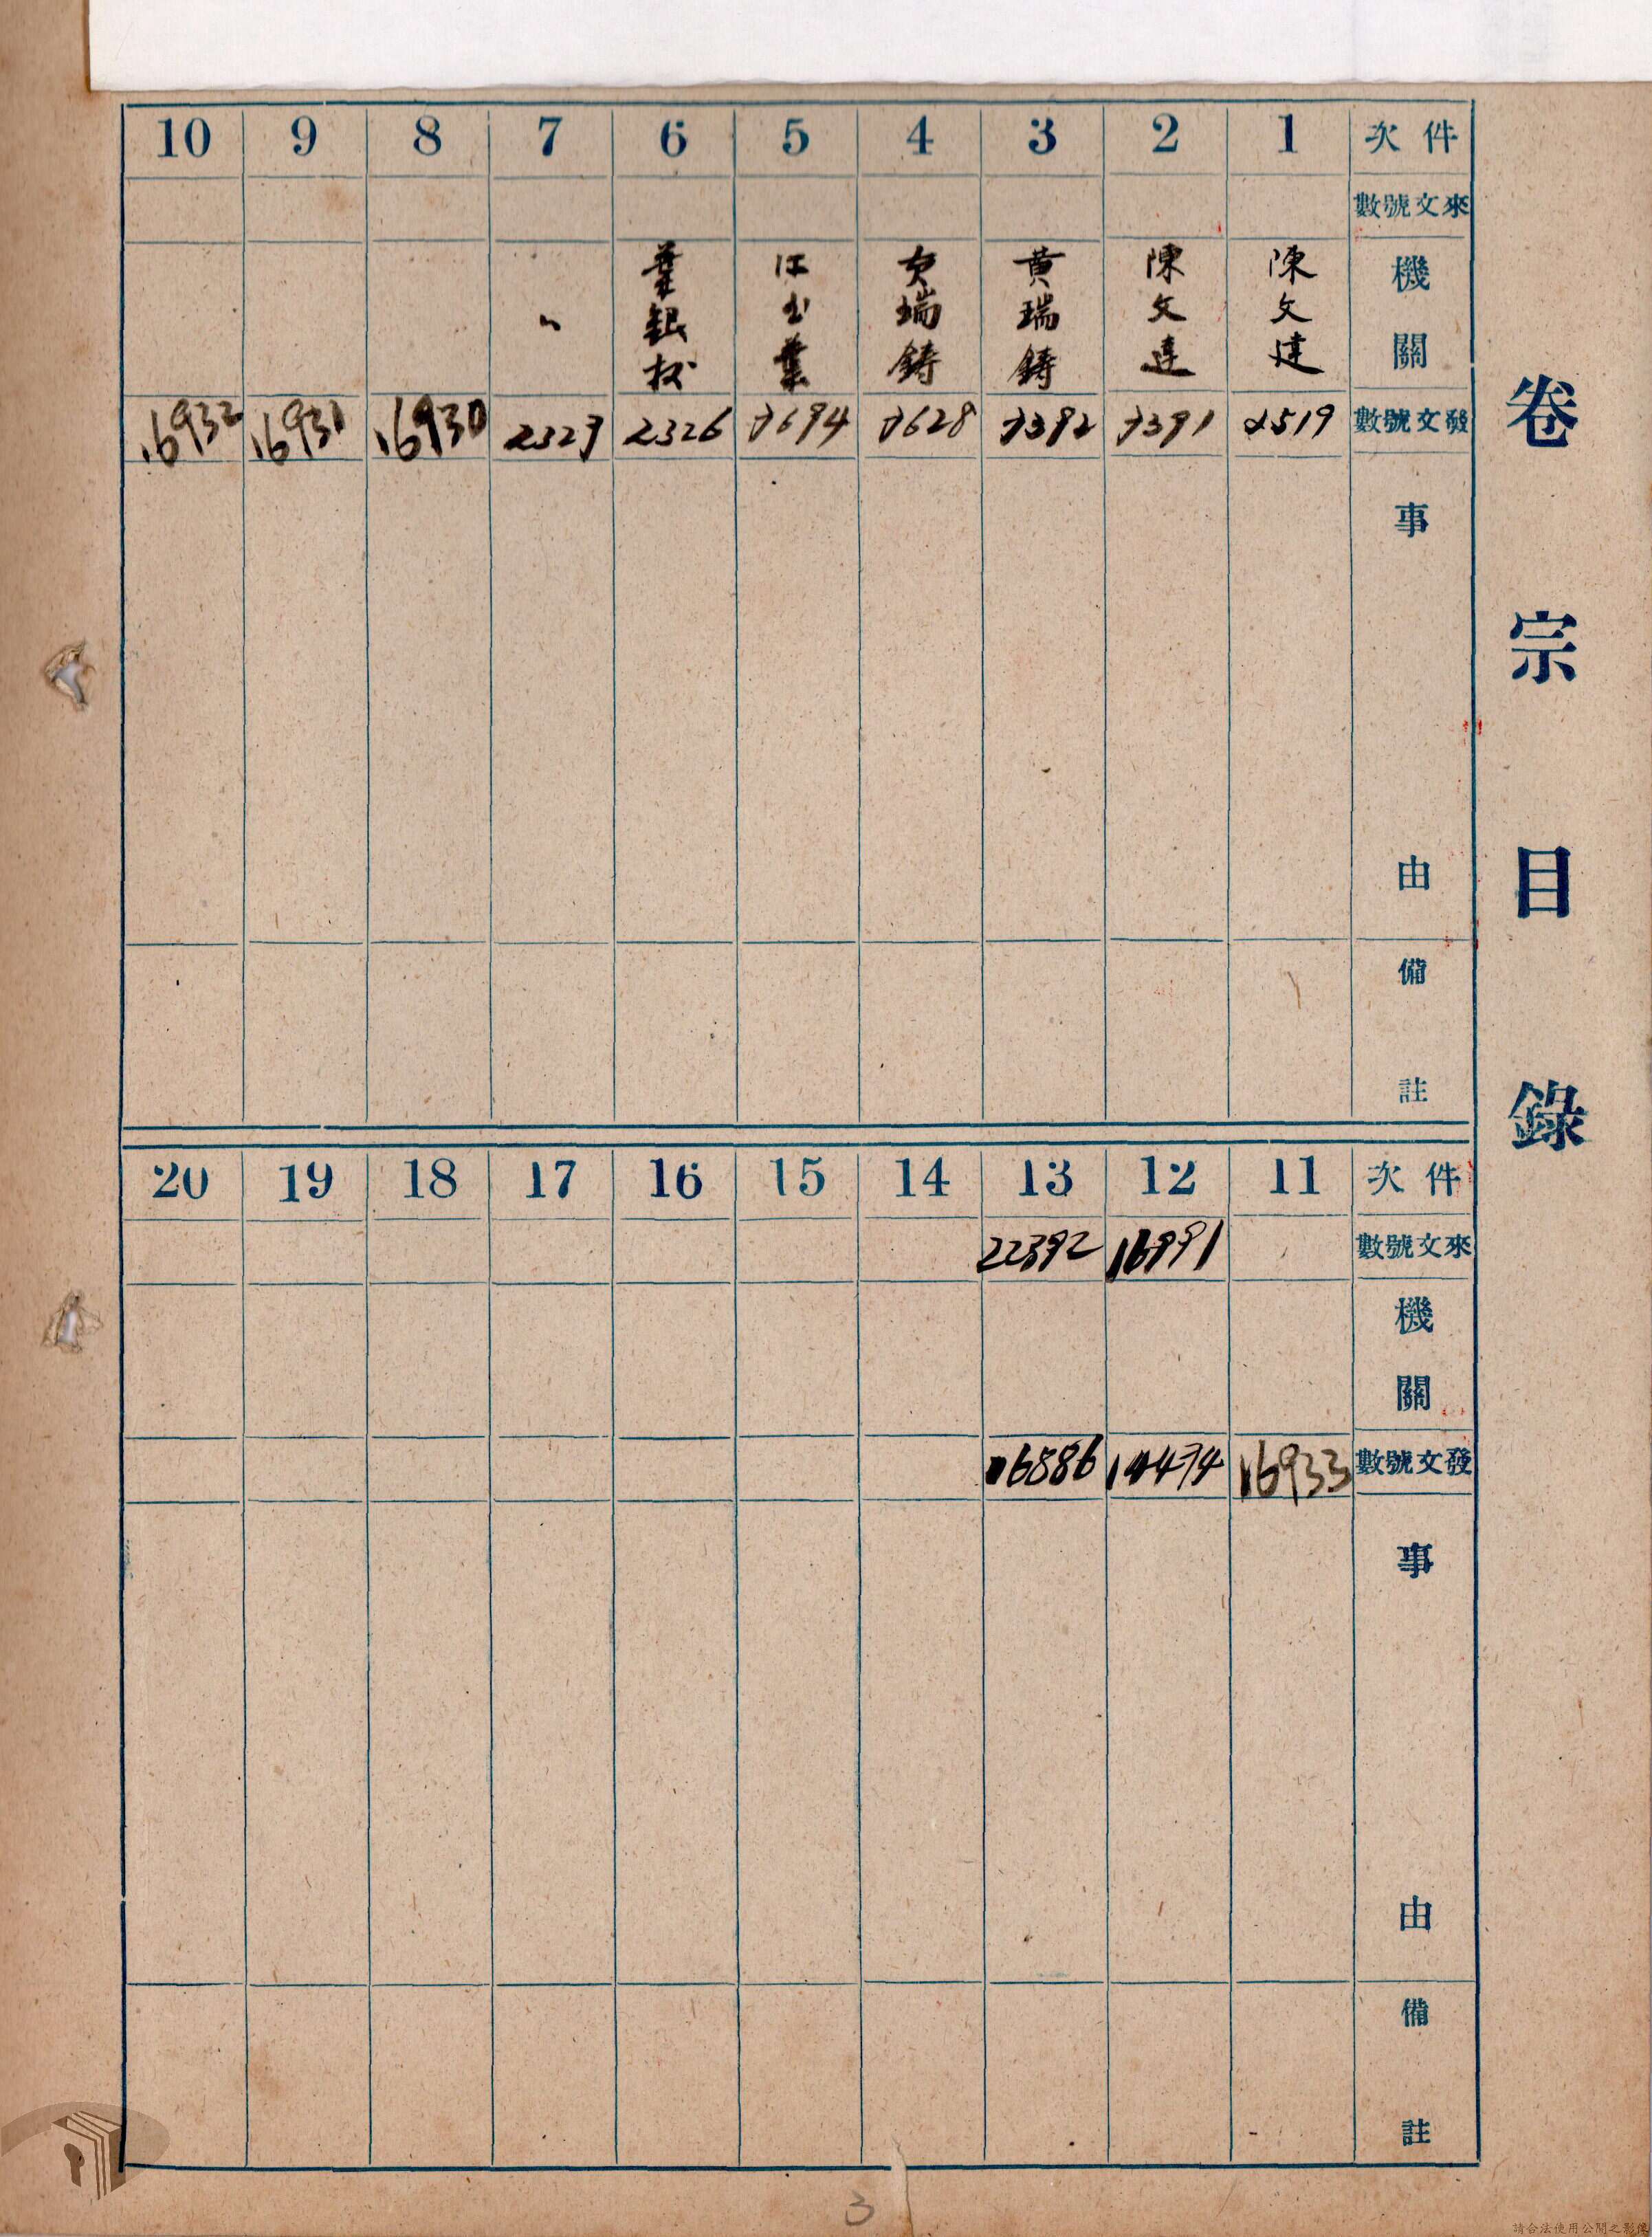 卷宗目錄
件次 1 2 3 4 5 6 7 8 9 10
來文號數
機關 陳文達 陳文達 黃瑞鑄 黃瑞鑄 江玉葉 葉銀 〃
發文號數 2519 7391 7392 7628 7694 2326 2327 16930 16931 16932
事由
備註
件次 11 12 13 14 15 16 17 18 19 20
來文號數 16991 22392
機關
發文號數 16933 14474 16886
事由
備註
3
請合法使用公開之影像